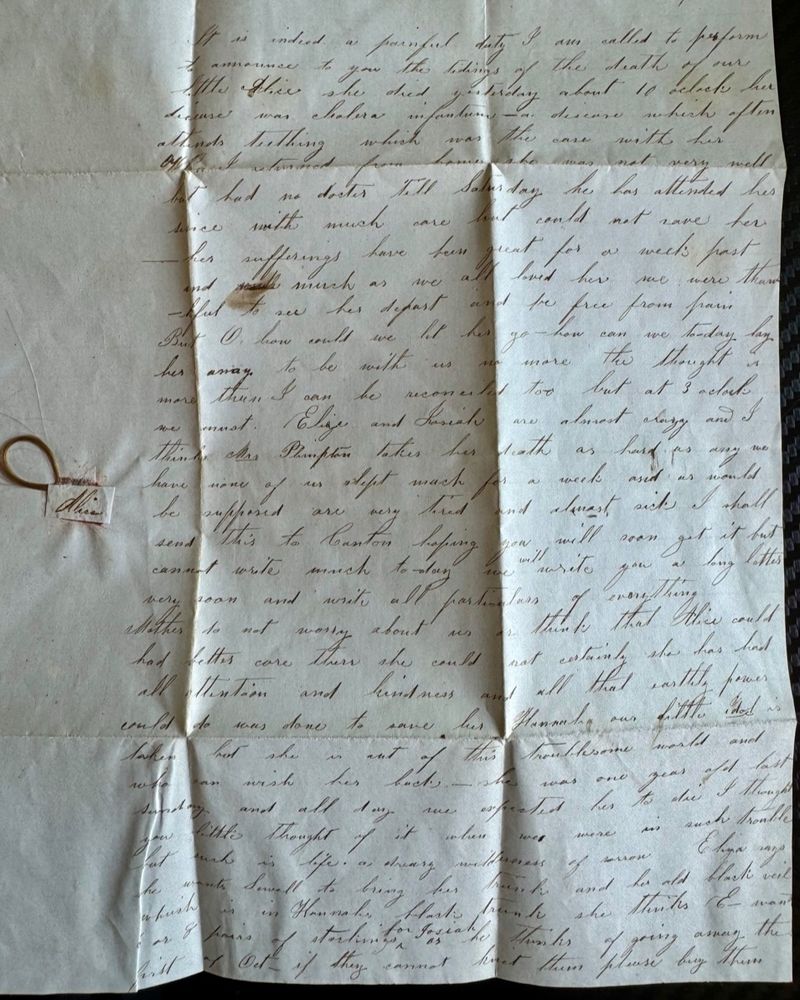 It is indeed a painful duty I am called to perform
to announce to you the tidings of the death of our
little Alice she died yesterday about 10 oclock her
disease was cholera infantum – a disease which often
attends teething which was the case with her
When I returned from home she was not very well
but had no doctor till Saturday he has attended her
since with much care but could not save her
– her sufferings have been great for a week past
and much as we all loved her we were than
-kful to see her depart and be free from pain
But O, how could we let her go – how can we today lay
her away to be with us no more the thought is
more than I can be reconciled too but at 3 oclock
we must. Eliza and Josiah are almost crazy and I
think Mrs Plimpton takes her death as hard as any we
have none of us slept much for a week and as would
be supposed are very tired and almost sick I shall
send this to Canton hoping you will soon get it but
cannot write much to-day we will write you a long letter
very soon and write all particulars of everything
Mother do not worry about us or think that Alice could
had better care then she could not certainly she has had
all attention and kindness and all that earthly power
could do was done to save her Hannah our little idol is
taken but she is out of this troublesome world and
who can wish her back – she was one year old last
sunday and all day we expected her to die I thought
you little thought of it when we were in such trouble
but such is life. a dreary wilderness of sorrow Eliza says
she wants Sewall to bring her trunk and her old black veil
which is in Hannahs black trunk she thinks E– want
or 8 pairs of stockings for Josiah as he thinks of going away the
first of Oct – if they cannot knit them please buy them
Alice